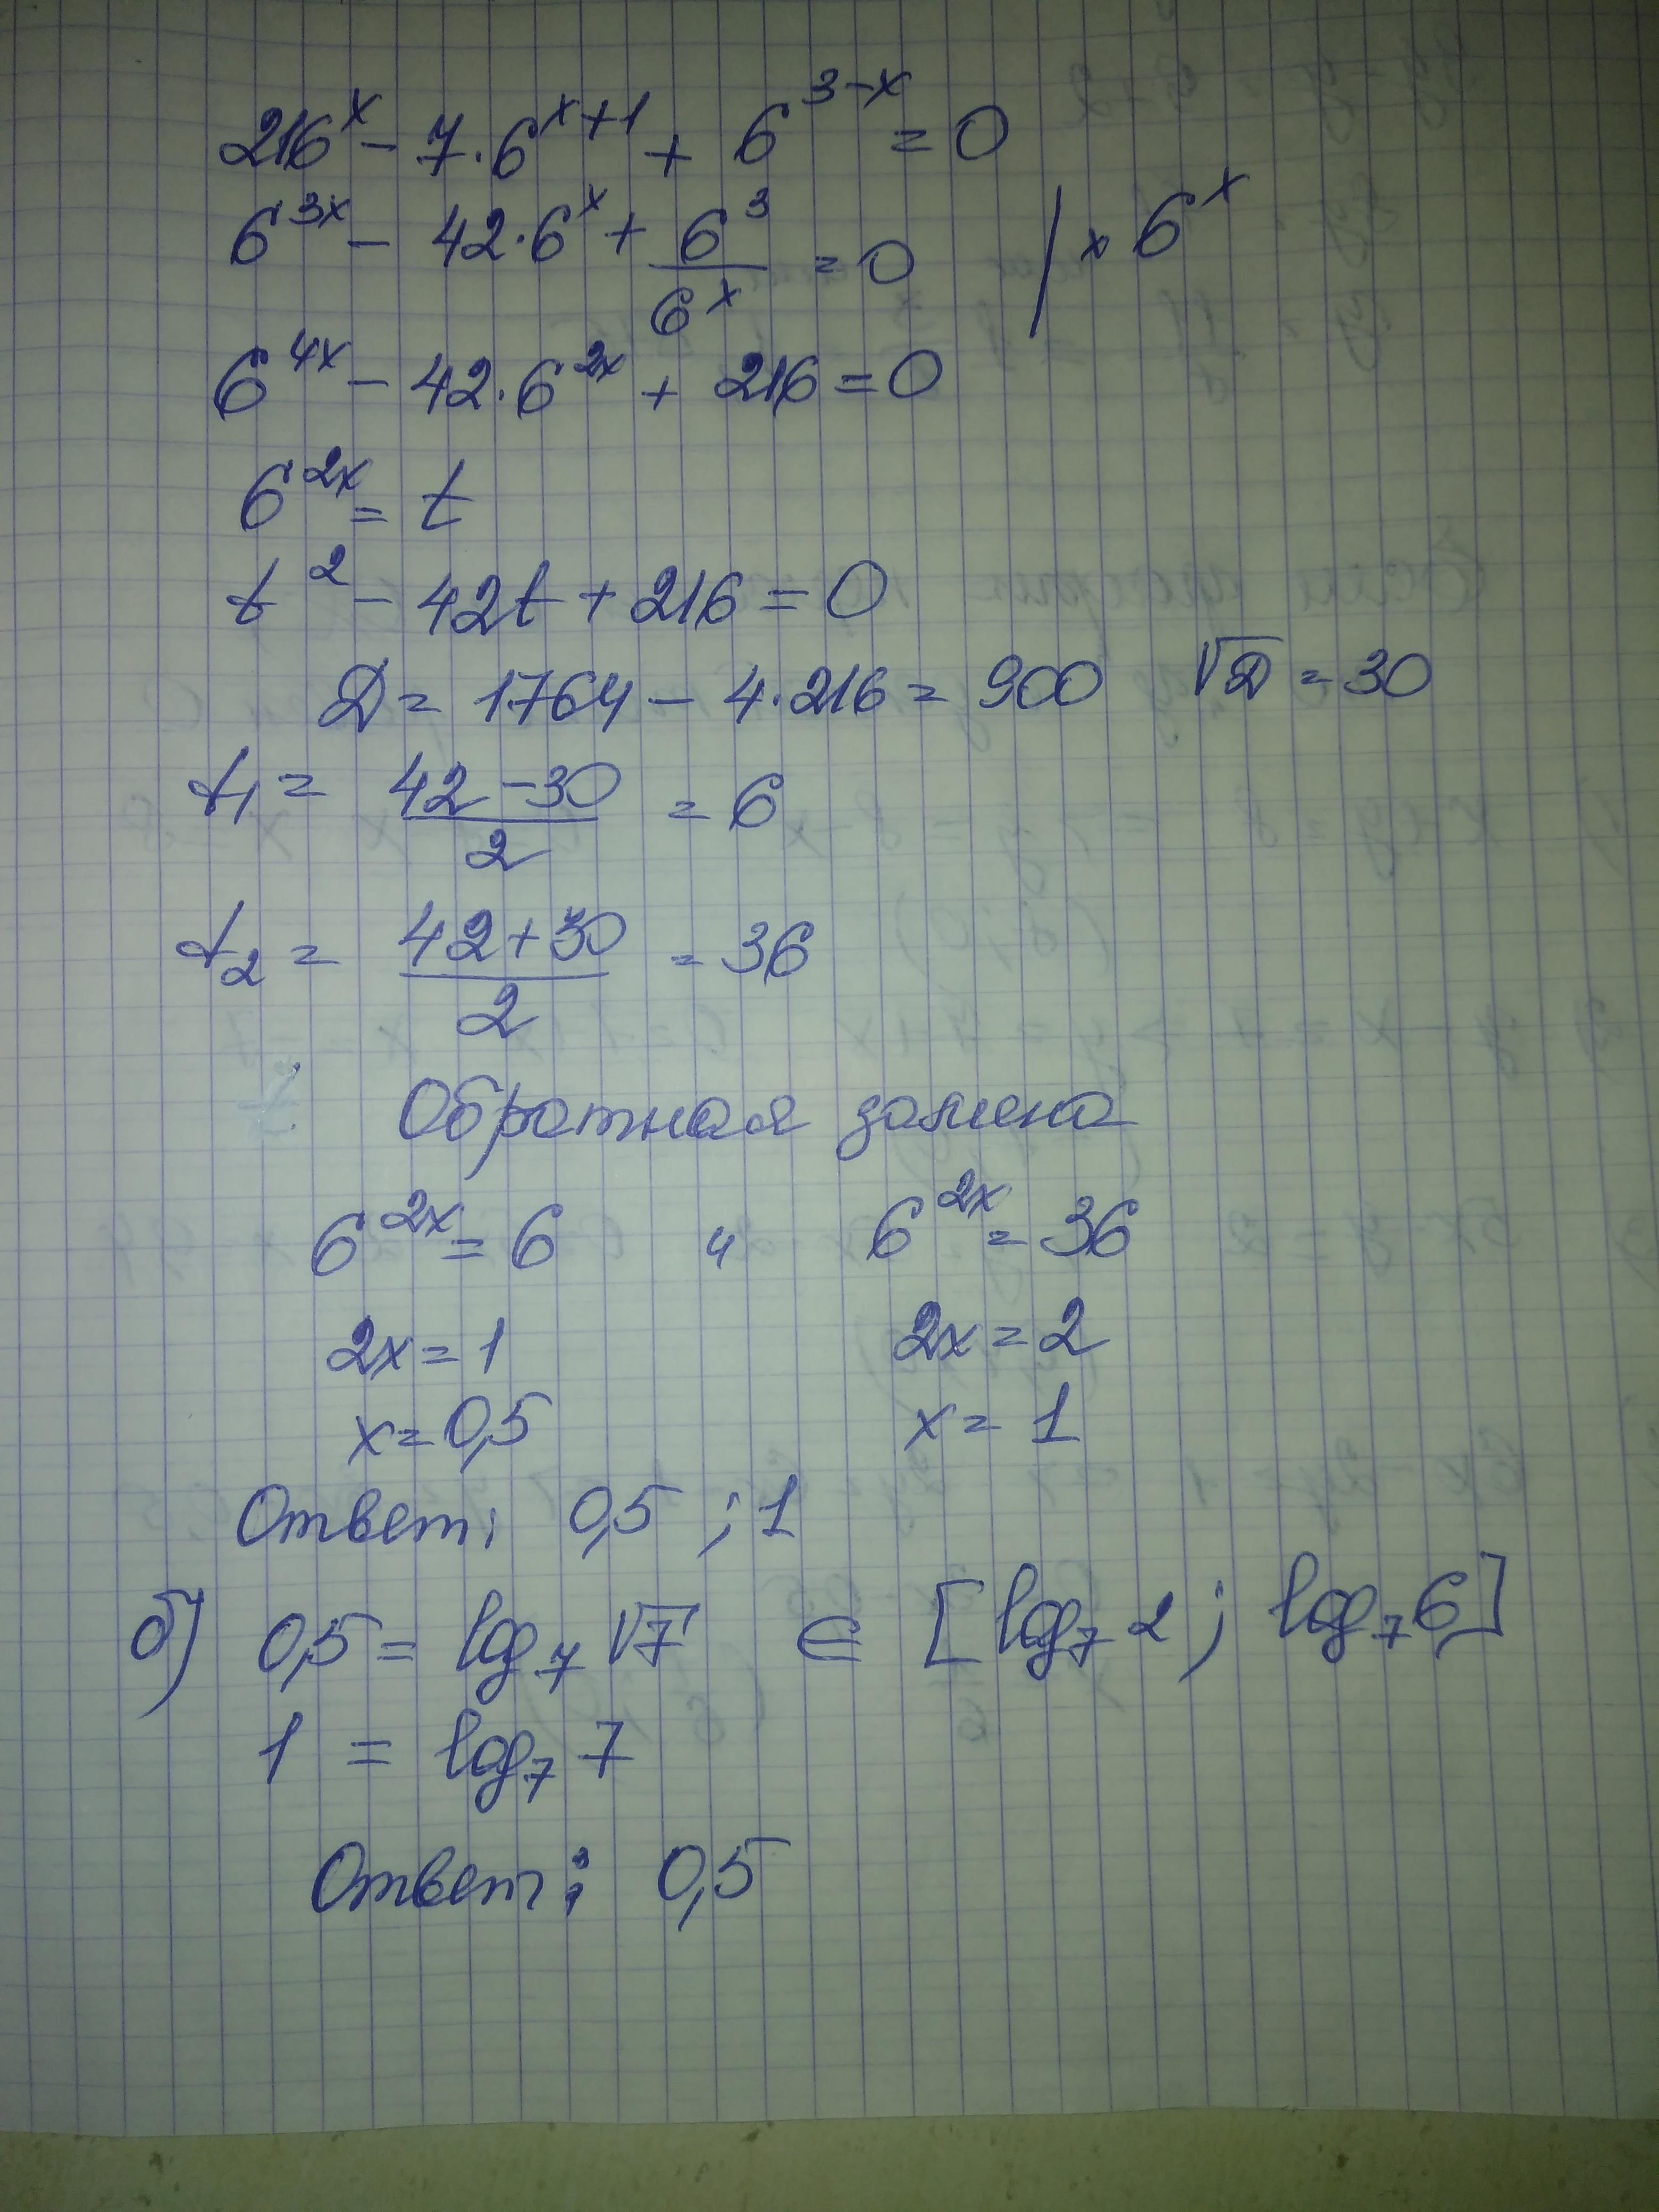 216^x − 7·6^(x+1) + 6^(3−x) = 0
6^(3x) − 42·6^x + 6^3/6^x = 0 | × 6^x
6^(4x) − 42·6^(2x) + 216 = 0
6^(2x) = t
t^2 − 42t + 216 = 0
D = 1764 − 4·216 = 900 √D = 30
t₁ = (42 − 30)/2 = 6
t₂ = (42 + 30)/2 = 36
Обратная замена
6^(2x) = 6 и 6^(2x) = 36
2x = 1 2x = 2
x = 0,5 x = 1
Ответ: 0,5 ; 1
б) 0,5 = log₇ √7 ∈ [log₇ 2 ; log₇ 6]
1 = log₇ 7
Ответ: 0,5